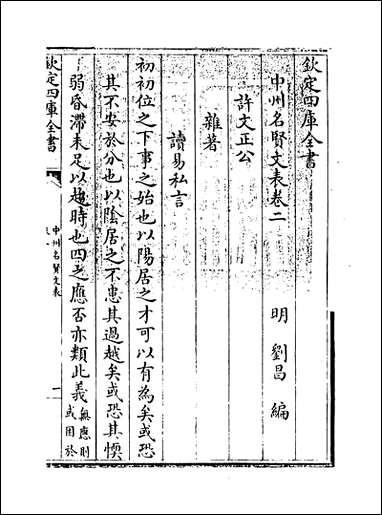 欽定四庫全書
中州名賢文表卷二
明 劉昌 編
許文正公
雜著
讀易私言
初初位之下事之始也以陽居之才可以有為矣或恐
其不安於分也以陰居之不患其過越矣或恐其懊
弱昏滯未足以趨時也四之應否亦類此義無應則
或困於
欽定四庫全書
中州名賢文表
一